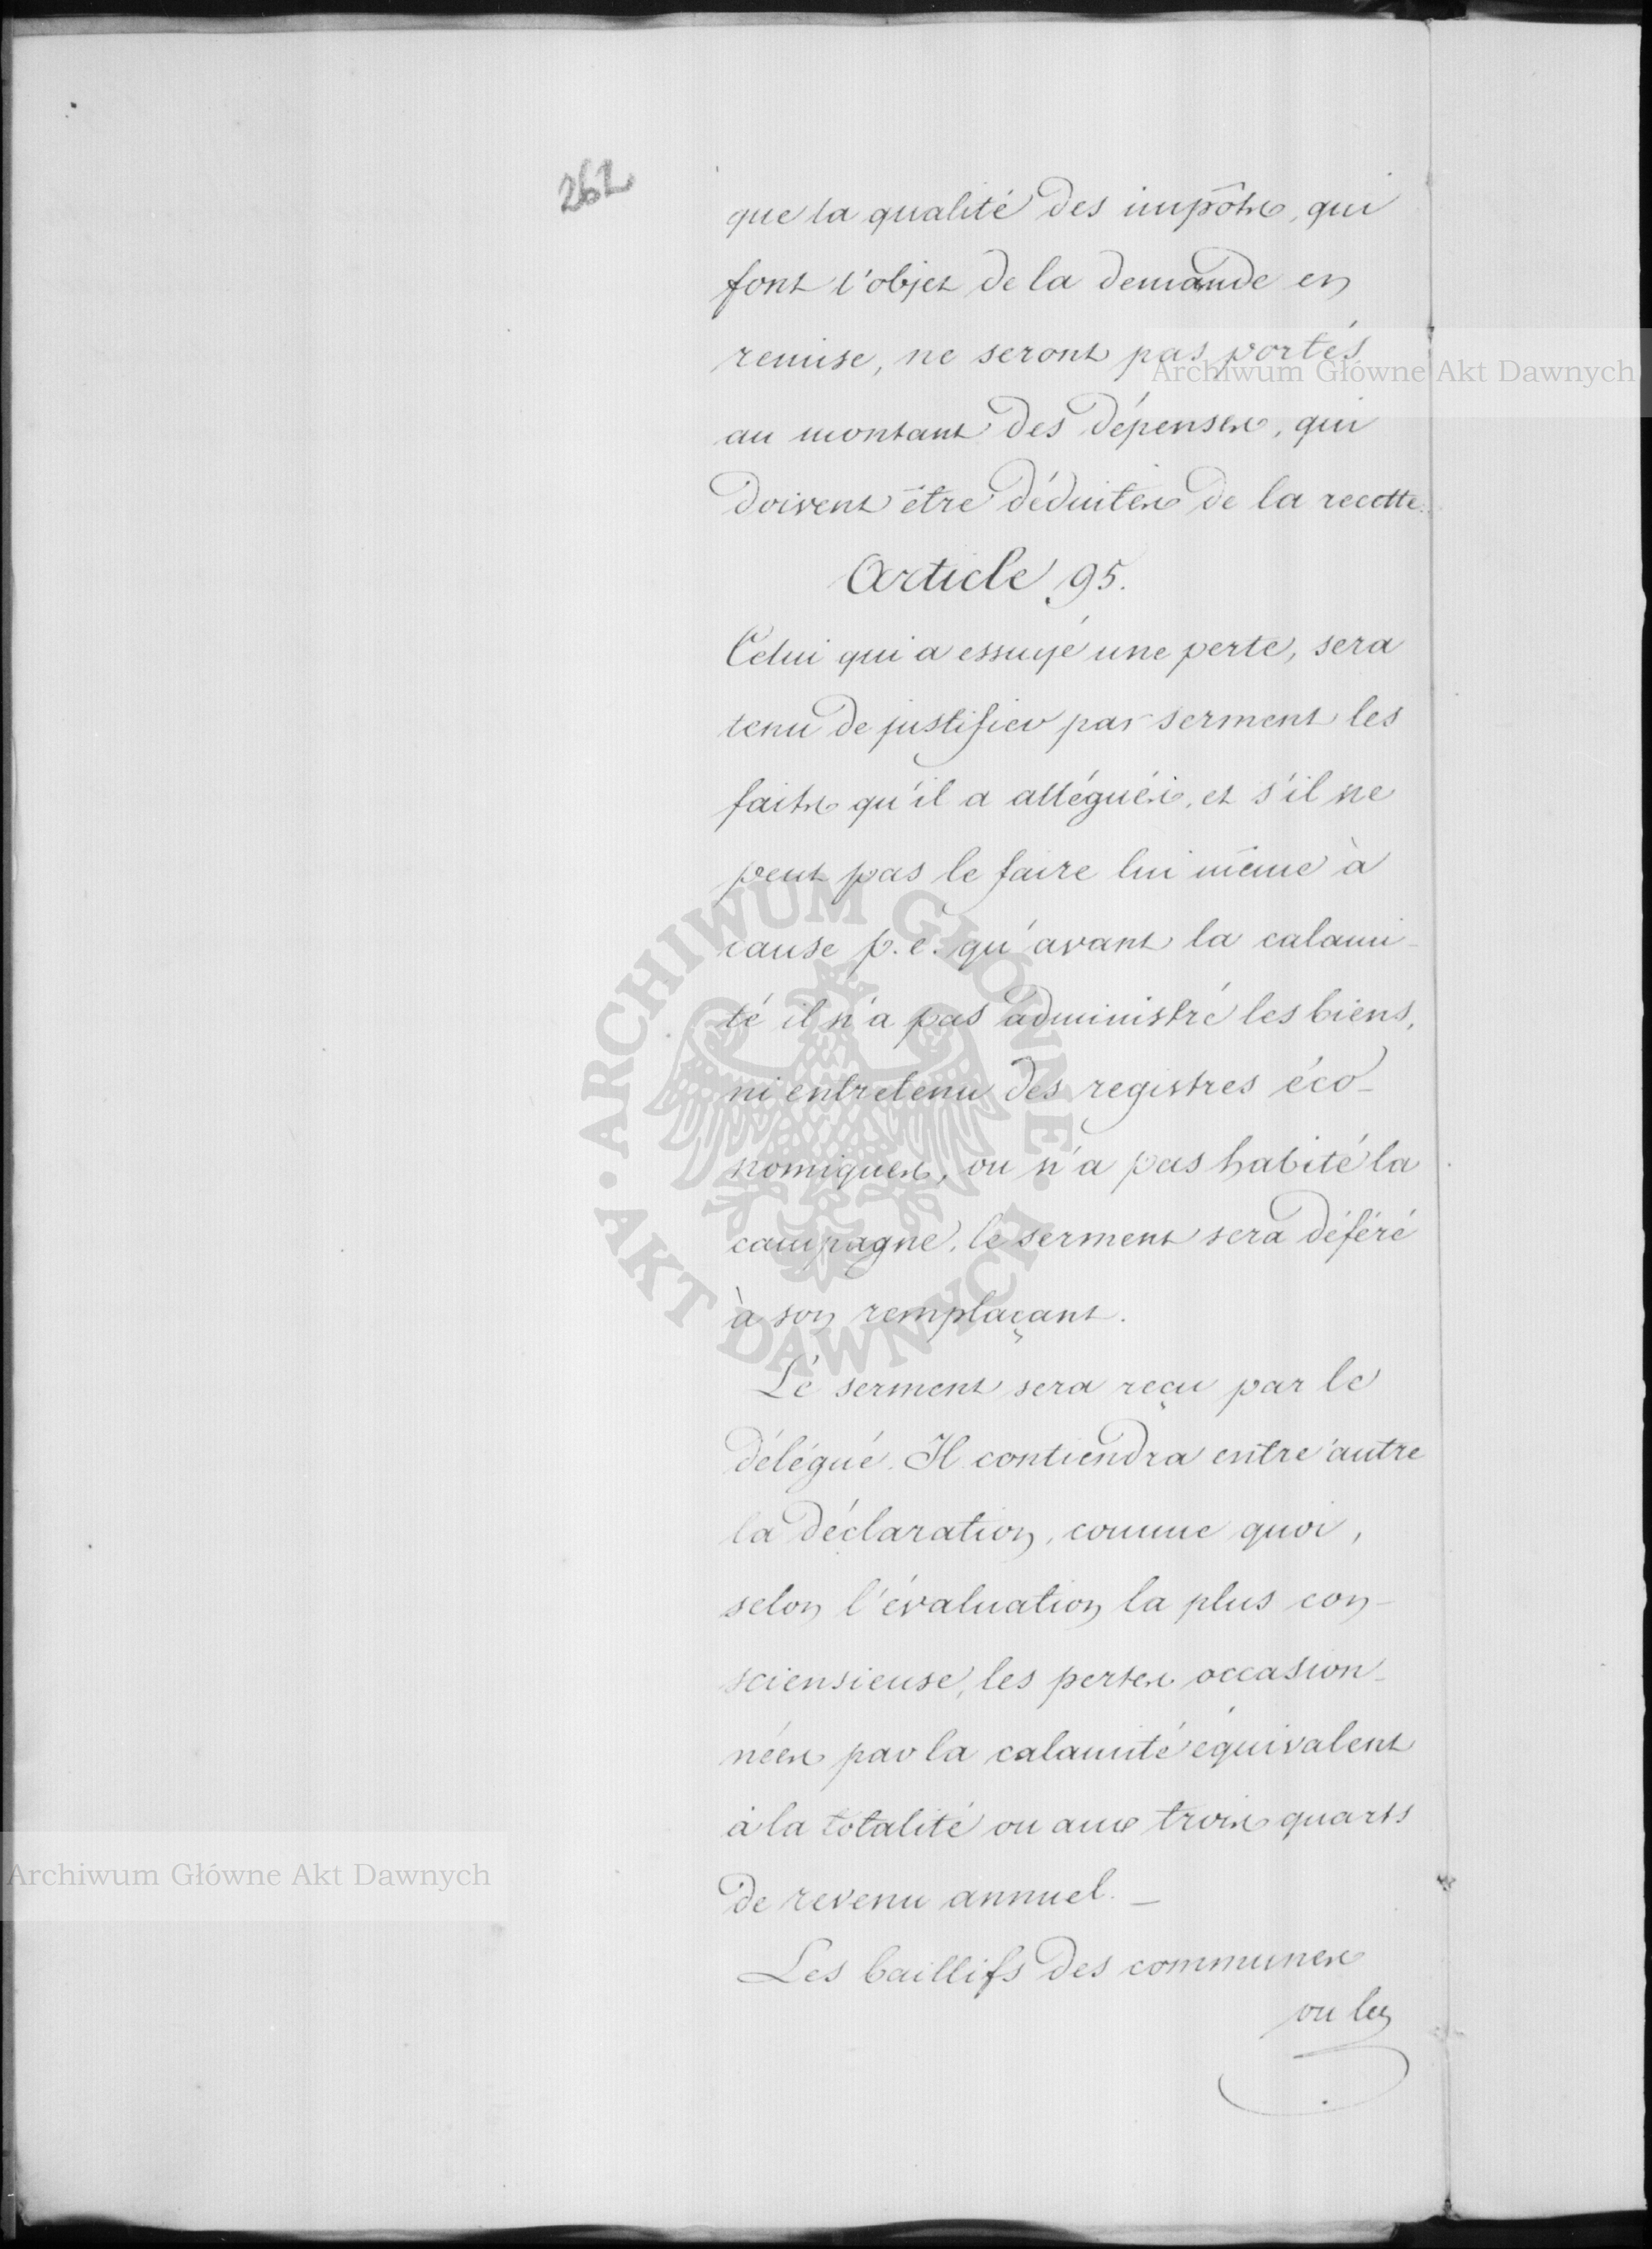 262
que la qualité des impôts, qui
font l'objet de la demande en
remise, ne seront pas portés
Archiwum Główne Akt Dawnych
au montant des dépenses, qui
doivent être déduites de la recette.
Article 95.
Celui qui a essuyé une perte, sera
tenu de justifier par serment les
faits qu'il a allégués, et s'il ne
peut pas le faire lui même à
cause p. e. qu'avant la calami-
té il n'a pas administré les biens,
ni entretenu des registres éco-
nomiques, ou n'a pas habité la
campagne, le serment sera déféré
à son remplaçant.
ARCHIWUM GŁÓWNE AKT DAWNYCH
Le serment sera reçu par le
délégué. Il contiendra entre autre
la déclaration, comme quoi,
selon l'évaluation la plus con-
sciensieuse, les pertes occasion-
nées par la calamité équivalent
à la totalité ou aux trois quarts
Archiwum Główne Akt Dawnych
de revenu annuel. —
Les baillifs des communes
ou les